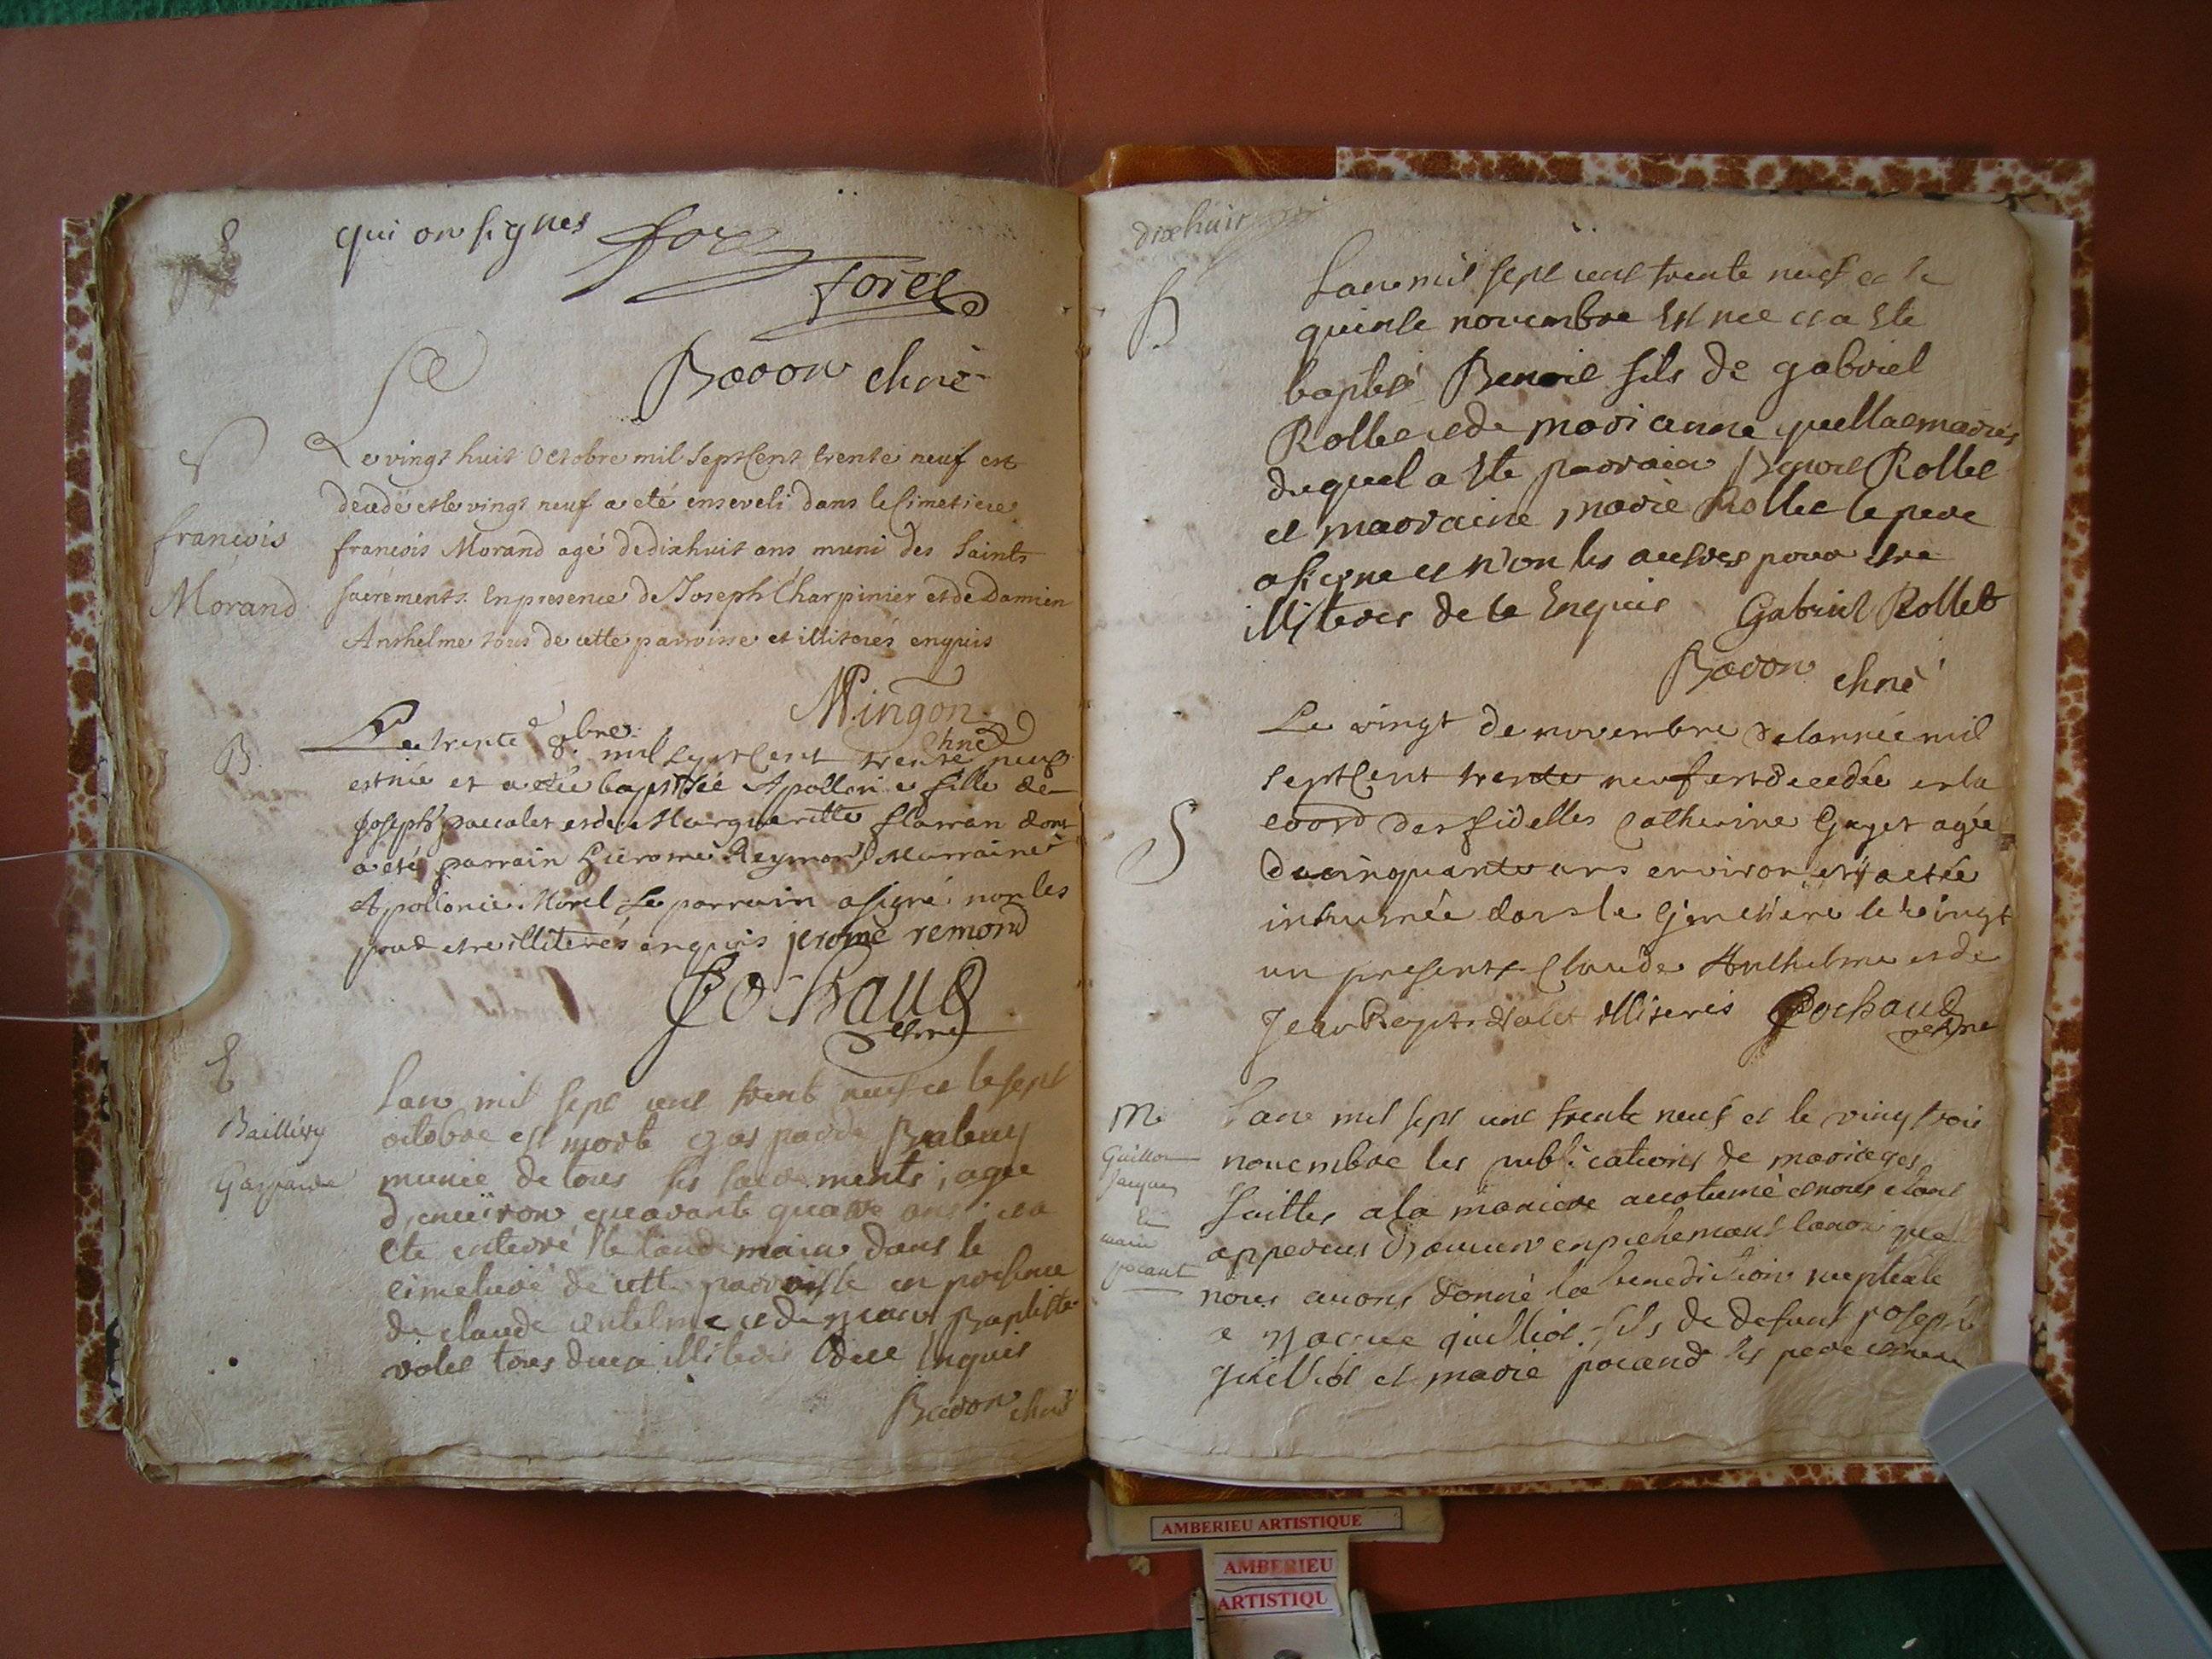 qui on signes
Forel
Baron chne
S
françois
Morand
Le vingt huit Octobre mil Sept Cent trente neuf est
decedé et le vingt neuf a eté enseveli dans le Cimetiere
françois Morand agé de dixhuit ans muni des Saints
sacrements. En presence de Joseph Charpinier et de Damien
Anthelme tous de cette parroisse et illiterés enquis
Mingon
chne
B
Le trente 8.bre mil Sept Cent trente neuf
est née et a eté baptisée Apollonie fille de
Joseph paccalet et de Marguerite flavian dont
a eté parrain hierome Reymon Marraine
Apollonie Morel Le parrain a signé non les
pour etre illiterés enquis jerome remond
Cochaud
chne
Baillivy
Gasparde
Lan mil sept cent trent neuf et le sept
octobre est morte gasparde
munie de tous ses sacrements, agee
d,enuiron quarante quatre ans, et a
ete enterré le landemain dans le
cimetiere de cette parroisse en presence
de claude entelme et de jean Baptiste
violet tous deux illiteres de ce Enquis
Baron chne
dixhuit
B
Lan mil sept cent trente neuf et le
quinse novembre Est nee et a Ete
baptisé Benoit fils de gabriel
Rollet et de marianne mariés
duquel a Ete parrain Benoit Rollet
et marraine marie Rollet le pere
a signe et non les autres pour etre
illiteres de ce Enquis Gabriel Rollet
Baron chne
S
Le vingt de novembre de lannée mil
Sept Cent trente neuf est decedée en la
coord des fidelles Catherine Guyet agée
de cinquante ans environ et a etée
inhumée dans le Cimetiere le vingt
un presents Claude Anthelme et de
Jean Bapt. violet illiterés Cochaud
chne
M
Guillon
Jacques
et
marie
pocant
Lan mil sept cent trente neuf et le vingt trois
novembre les publications de mariages
faittes a la maniere accotumé et nous etant
apperceus d,aucun enpechemant canonique
nous auons donné la benediction nuptiale
a jacque guilliot fils de defunt joseph
guilliot et marie pocand ses pere et mere
AMBERIEU ARTISTIQUE
AMBERIEU
ARTISTIQU